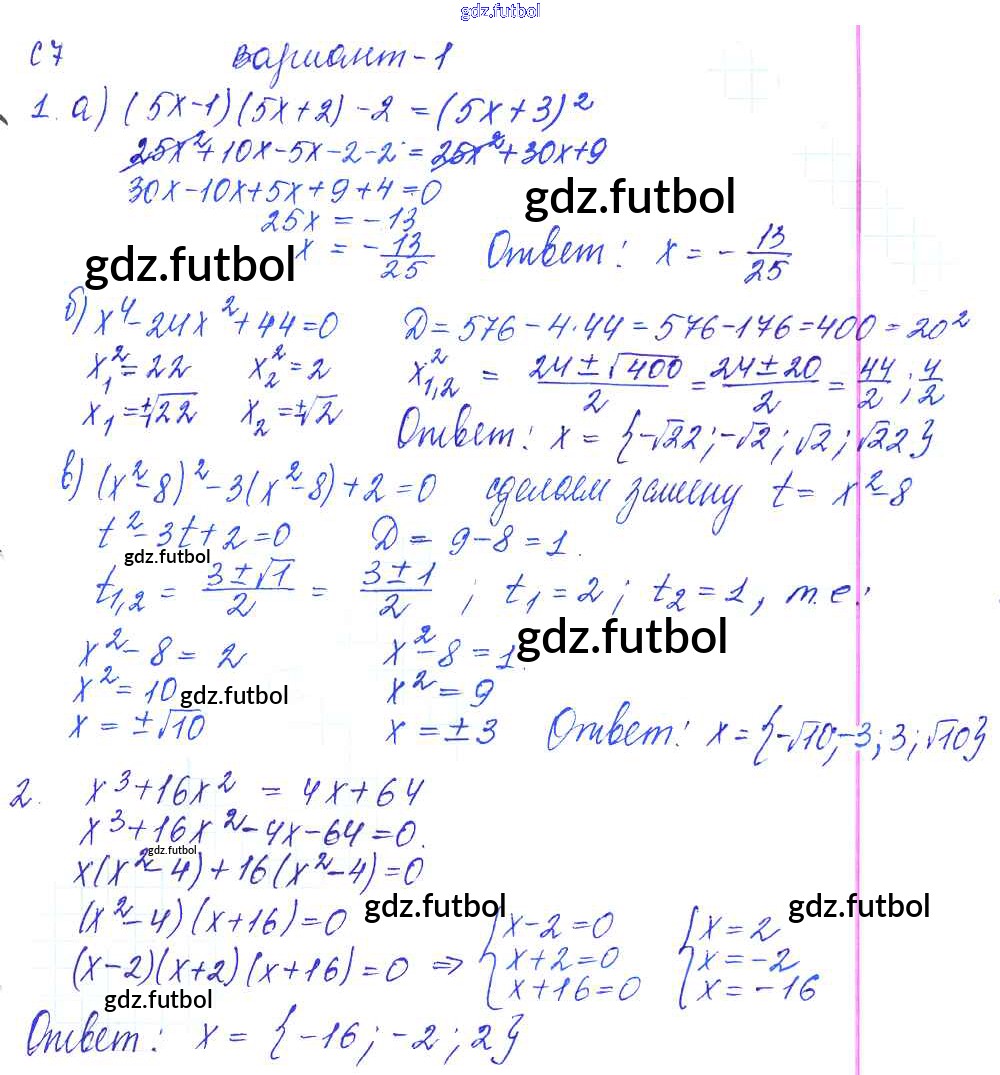 gdz.futbol
С7 вариант-1
1. а) (5x-1)(5x+2)-2=(5x+3)²
25x²+10x-5x-2-2=25x²+30x+9
30x-10x+5x+9+4=0
gdz.futbol
25x=-13
x=-13/25 Ответ: x=-13/25
gdz.futbol
б) x⁴-24x²+44=0 D=576-4·44=576-176=400=20²
x₁²=22 x₂²=2 x²₁,₂ = (24±√400)/2 = (24±20)/2 = 44/2; 4/2
x₁=±√22 x₂=±√2
Ответ: x={-√22;-√2;√2;√22}
в) (x²-8)²-3(x²-8)+2=0 сделаем замену t=x²-8
t²-3t+2=0 D=9-8=1.
gdz.futbol
t₁,₂ = (3±√1)/2 = (3±1)/2; t₁=2; t₂=1, т.е.:
gdz.futbol
x²-8=2 x²-8=1.
x²=10 x²=9
gdz.futbol
x=±√10 x=±3 Ответ: x={-√10;-3;3;√10}
2. x³+16x²=4x+64
x³+16x²-4x-64=0.
gdz.futbol
x(x²-4)+16(x²-4)=0
(x²-4)(x+16)=0 gdz.futbol { x-2=0 { x=2 gdz.futbol
(x-2)(x+2)(x+16)=0 ⇒ x+2=0 x=-2
x+16=0 x=-16
gdz.futbol
Ответ: x={-16;-2;2}